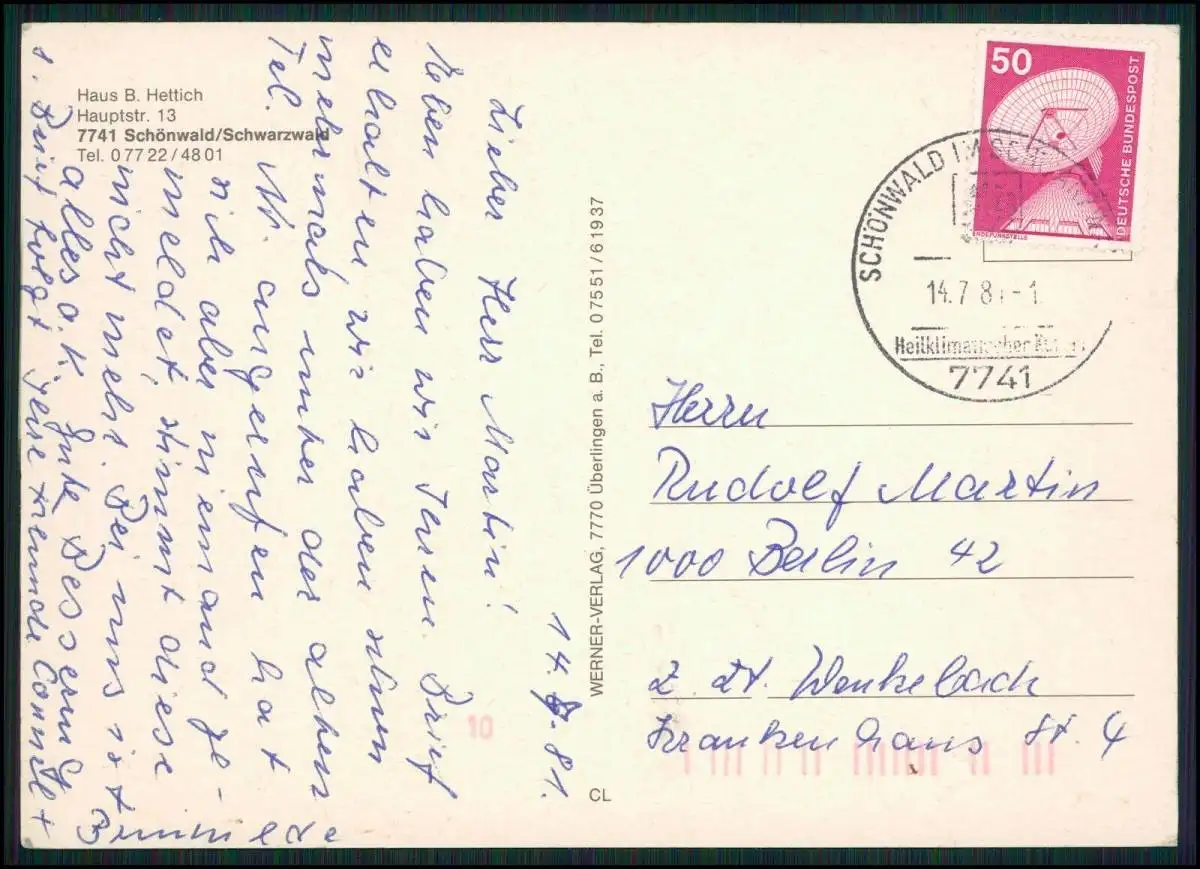 Haus B. Hettich
Hauptstr. 13
7741 Schönwald/Schwarzwald
Tel. 0 77 22 / 48 01
14. 7. 81.
Lieber Herr Martin!
Eben haben wir Ihren Brief
erhalten, wir haben schon
mehrmals unter der alten
Tel. Nr. angerufen hat
sich aber niemand ge-
meldet, stimmt diese
nicht mehr. Bei uns ist
alles o.k. Gute Besserung
s. Brief folgt, Ihre Freunde
WERNER-VERLAG, 7770 Überlingen a. B., Tel. 0 75 51 / 6 19 37
CL
50
DEUTSCHE BUNDESPOST
ERDEFUNKSTELLE
SCHÖNWALD IM
14.7.8 -1
Heilklimatischer
7741
Herrn
Rudolf Martin
1000 Berlin 42
z. Zt. Wenkebach
Krankenhaus St. 4
10